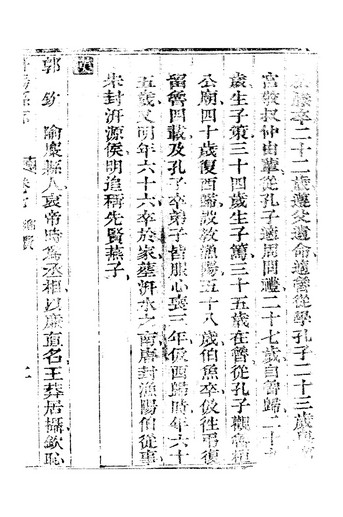 卒二十二歲遵父遺命適魯從學孔子二十三歲與
宮敬叔仲由輩從孔子適周問禮二十七歲自魯歸二十
歲生子策三十四歲生子萬三十五歲在晉從孔子觀魯桓
公廟四十歲復西歸設教漁陽五十八歲伯魚卒仮往弔復
留魯四載及孔子卒弟子皆服心喪三年仮西歸時年六十
五歲又明年六十六卒於家葬汧水之南唐封漁陽伯從事
宋封汧源侯明追稱先賢燕子
漢
郭欽 隃麋縣人哀帝時為丞相以廉直名王莽居攝欽恥